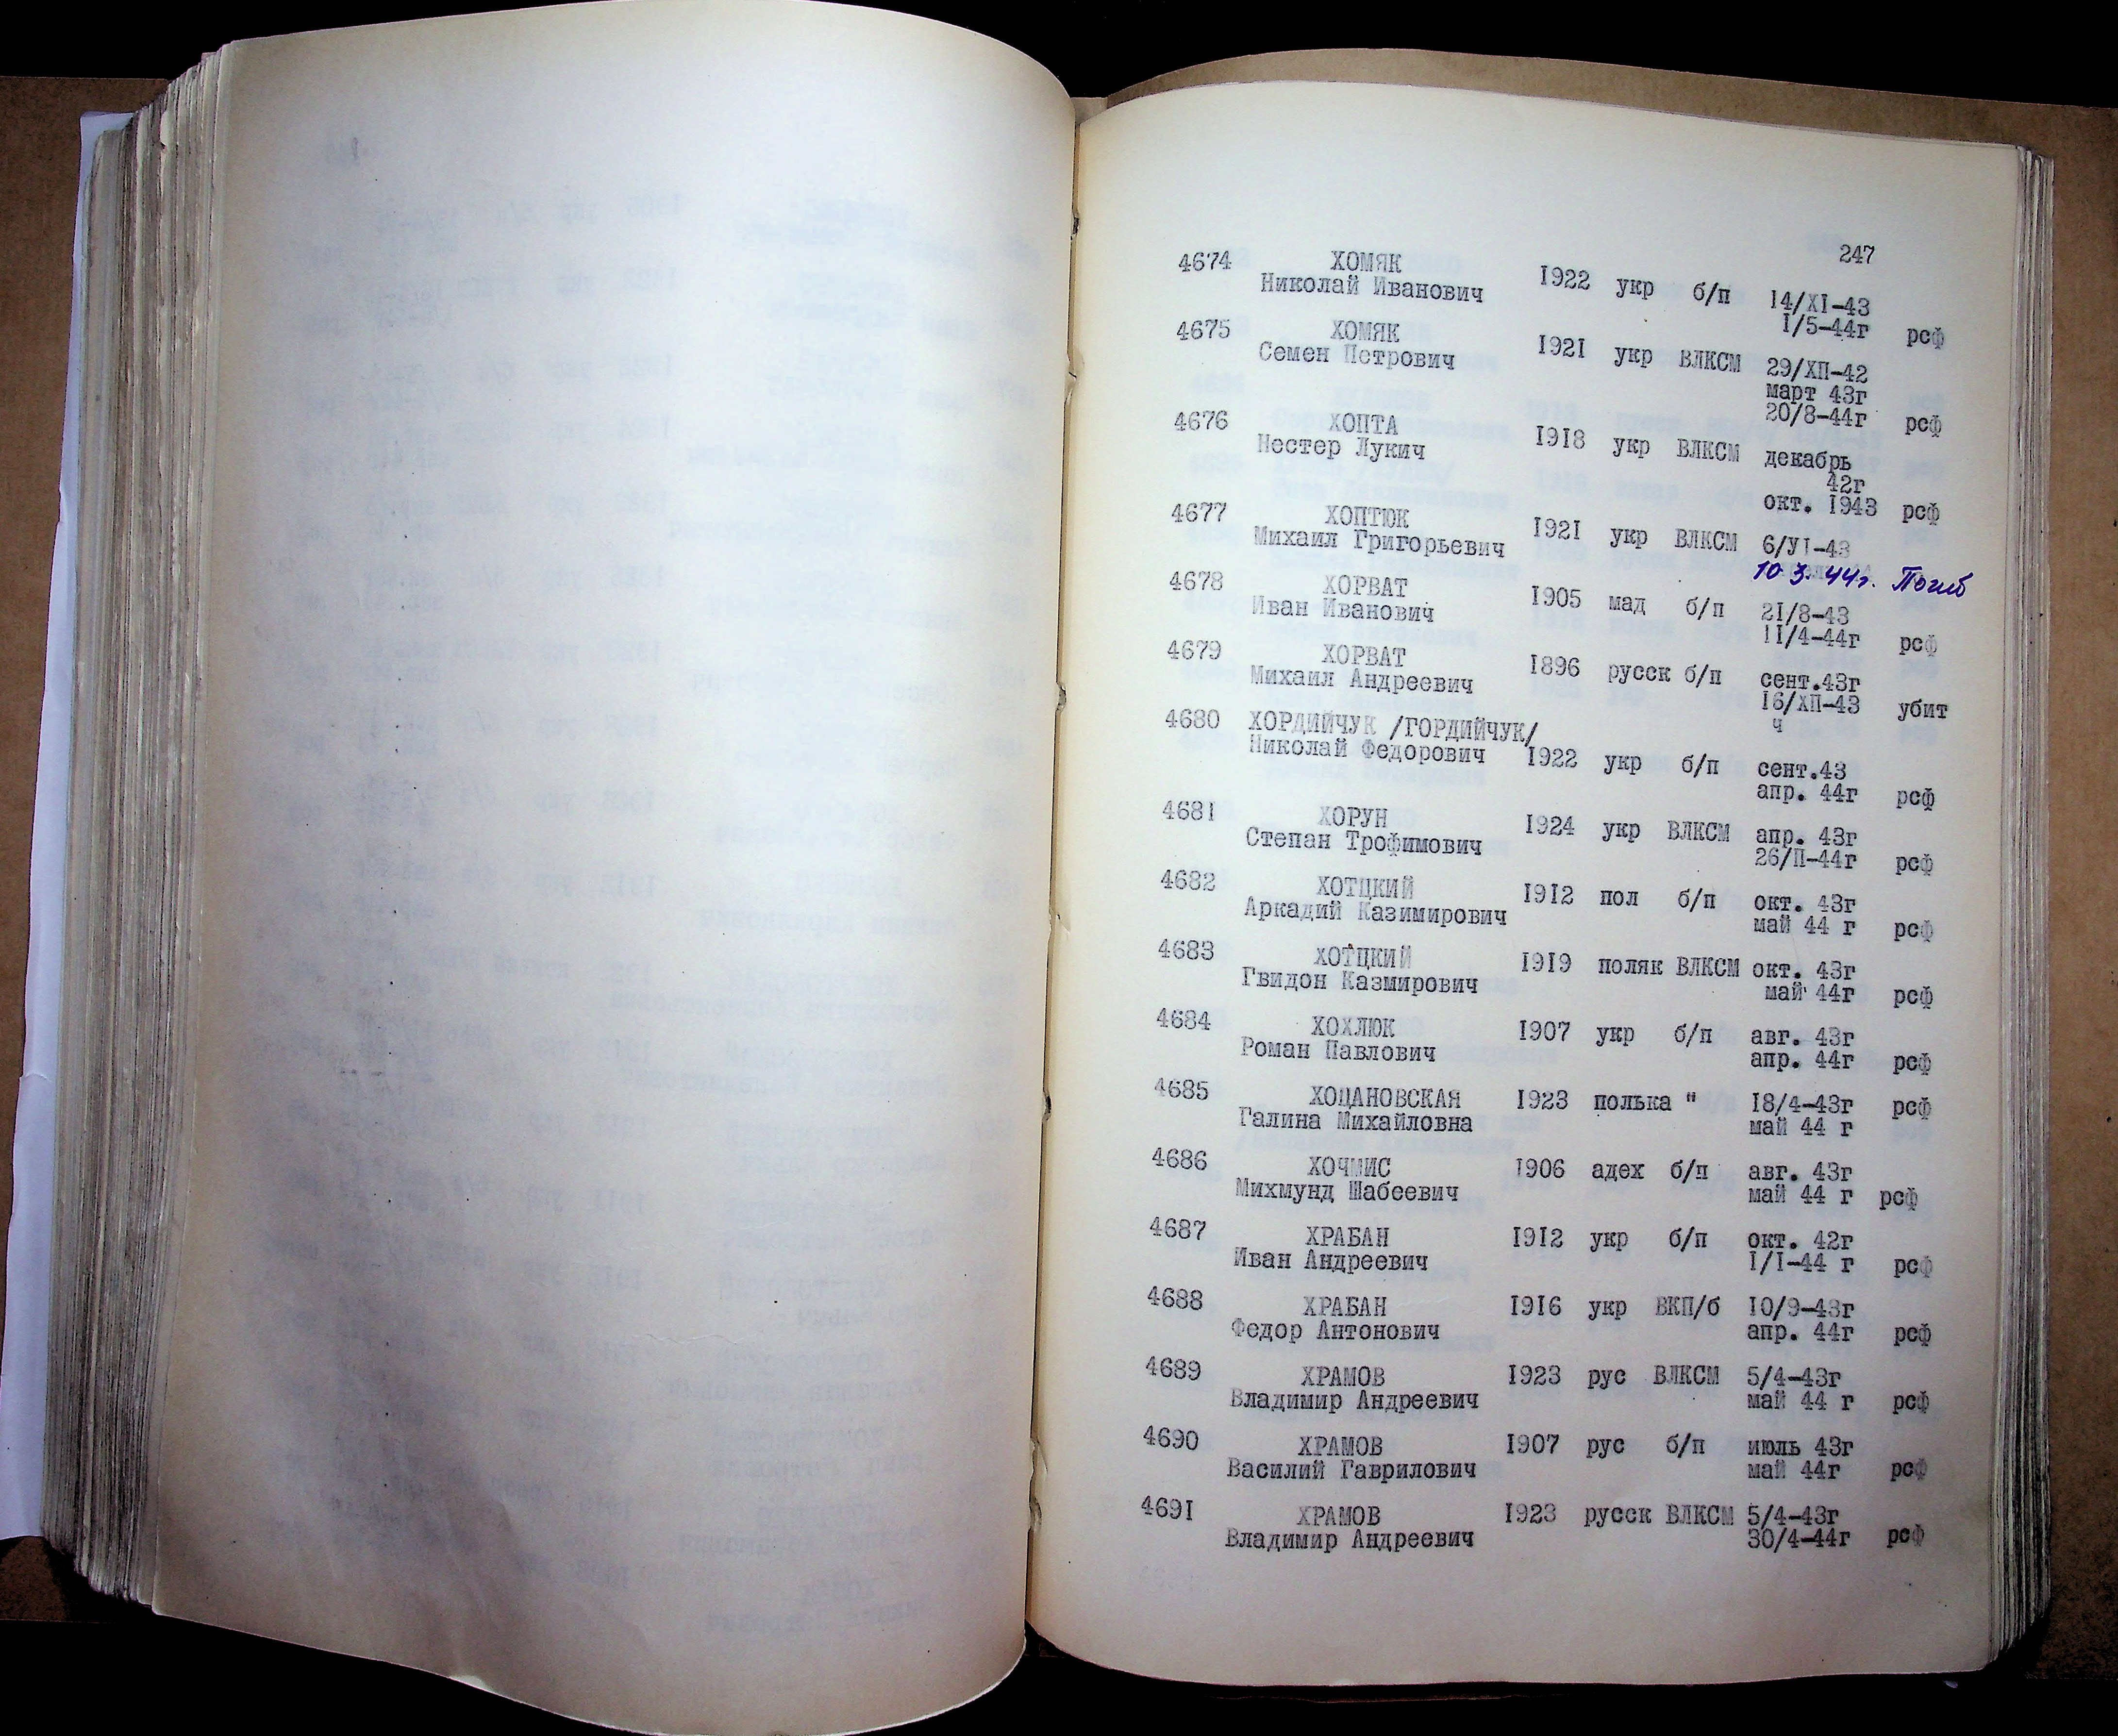 247
4674 ХОМЯК 1922 укр б/п 14/XI-43
Николай Иванович 1/5-44г рсф
4675 ХОМЯК 1921 укр ВЛКСМ 29/ХП-42
Семен Петрович март 43г
20/8-44г рсф
4676 ХОПТА 1918 укр ВЛКСМ декабрь
Нестер Лукич 42г
окт. 1943 рсф
4677 ХОПТЮК 1921 укр ВЛКСМ 6/УI-43
Михаил Григорьевич 10.3.44г. Погиб
4678 ХОРВАТ 1905 мад б/п 21/8-43
Иван Иванович 11/4-44г рсф
4679 ХОРВАТ 1896 русск б/п сент.43г
Михаил Андреевич 16/ХП-43 убит
ч
4680 ХОРДИЙЧУК /ГОРДИЙЧУК/
Николай Федорович 1922 укр б/п сент.43
апр. 44г рсф
4681 ХОРУН 1924 укр ВЛКСМ апр. 43г
Степан Трофимович 26/П-44г рсф
4682 ХОТЦКИЙ 1912 пол б/п окт. 43г
Аркадий Казимирович май 44 г рсф
4683 ХОТЦКИЙ 1919 поляк ВЛКСМ окт. 43г
Гвидон Казмирович май 44г рсф
4684 ХОХЛЮК 1907 укр б/п авг. 43г
Роман Павлович апр. 44г рсф
4685 ХОЦАНОВСКАЯ 1923 полька " 18/4-43г рсф
Галина Михайловна май 44 г
4686 ХОЧМИС 1906 адех б/п авг. 43г
Михмунд Шабеевич май 44 г рсф
4687 ХРАБАН 1912 укр б/п окт. 42г
Иван Андреевич 1/1-44 г рсф
4688 ХРАБАН 1916 укр ВКП/б 10/9-43г
Федор Антонович апр. 44г рсф
4689 ХРАМОВ 1923 рус ВЛКСМ 5/4-43г
Владимир Андреевич май 44 г рсф
4690 ХРАМОВ 1907 рус б/п июль 43г
Василий Гаврилович май 44г рсф
4691 ХРАМОВ 1923 русск ВЛКСМ 5/4-43г
Владимир Андреевич 30/4-44г рсф